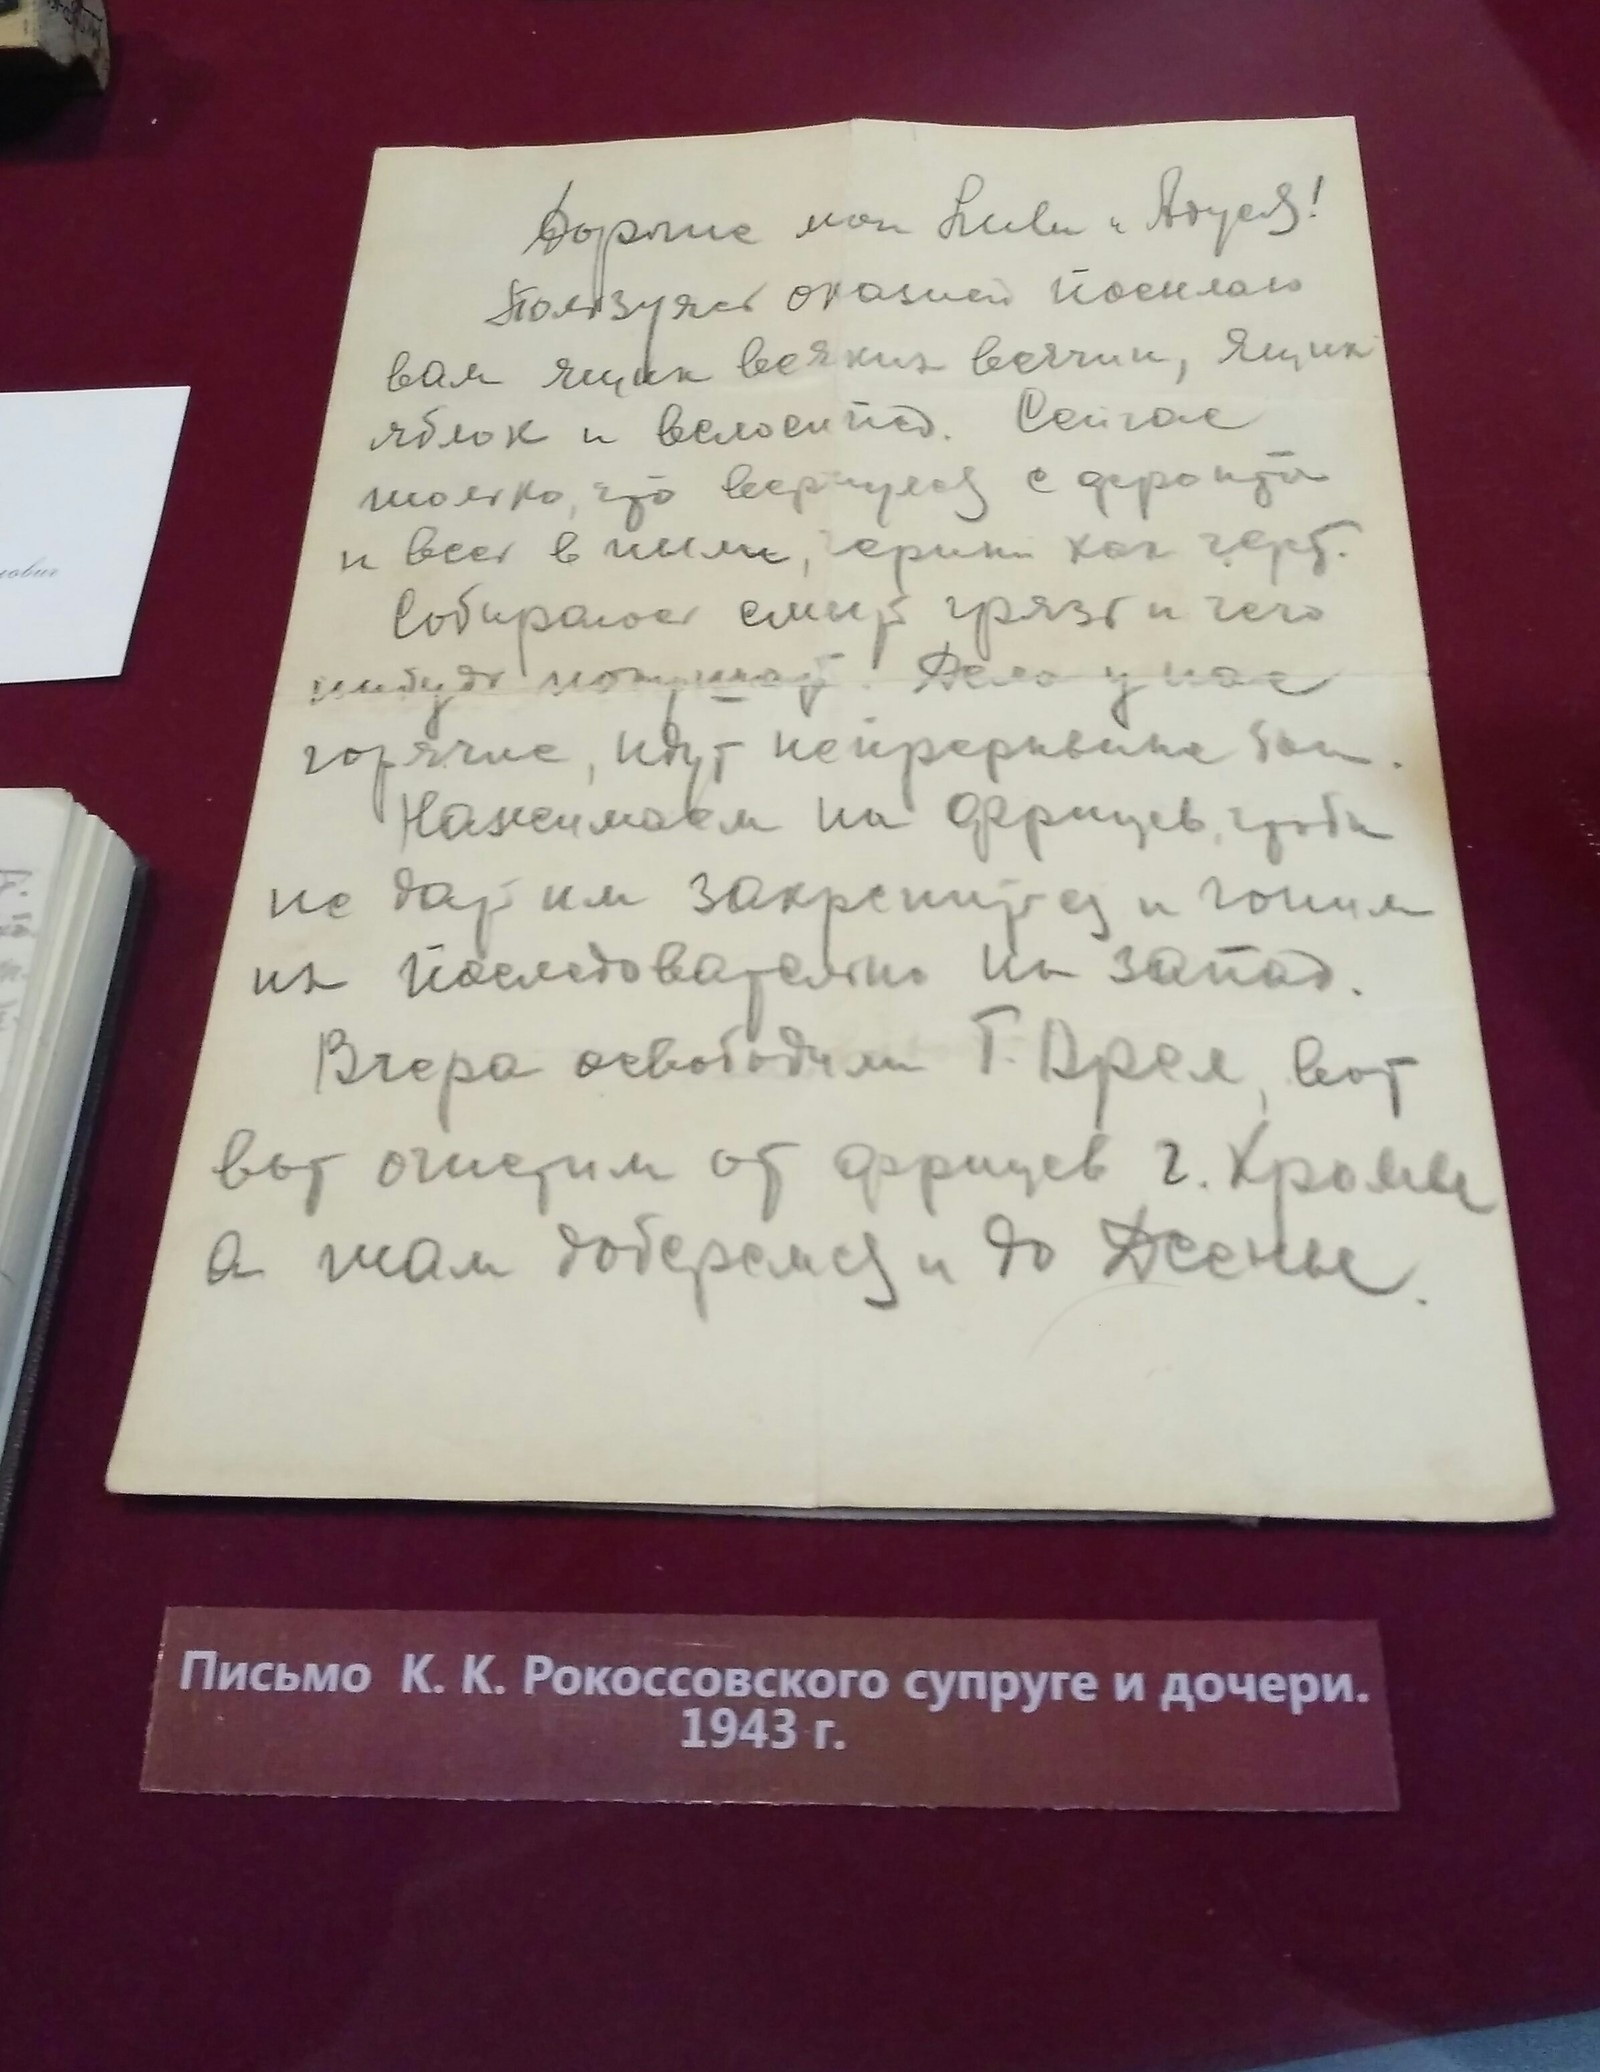 Дорогие мои Люлю и Адуся!
Пользуясь оказией посылаю
вам ящик всяких всячин, ящик
яблок и велосипед. Сейчас
только, что вернулся с фронта
и весь в пыли, черный как черт.
Собираюсь смыть грязь и чего
нибудь покушать! Дела у нас
горячие, идут непрерывные бои.
Нажимаем на фрицев, чтобы
не дать им закрепиться и гоним
их последовательно на запад.
Вчера освободили г. Орел, вот
вот очистим от фрицев г. Кромы
а там доберемся и до Десны.
Письмо К. К. Рокоссовского супруге и дочери.
1943 г.